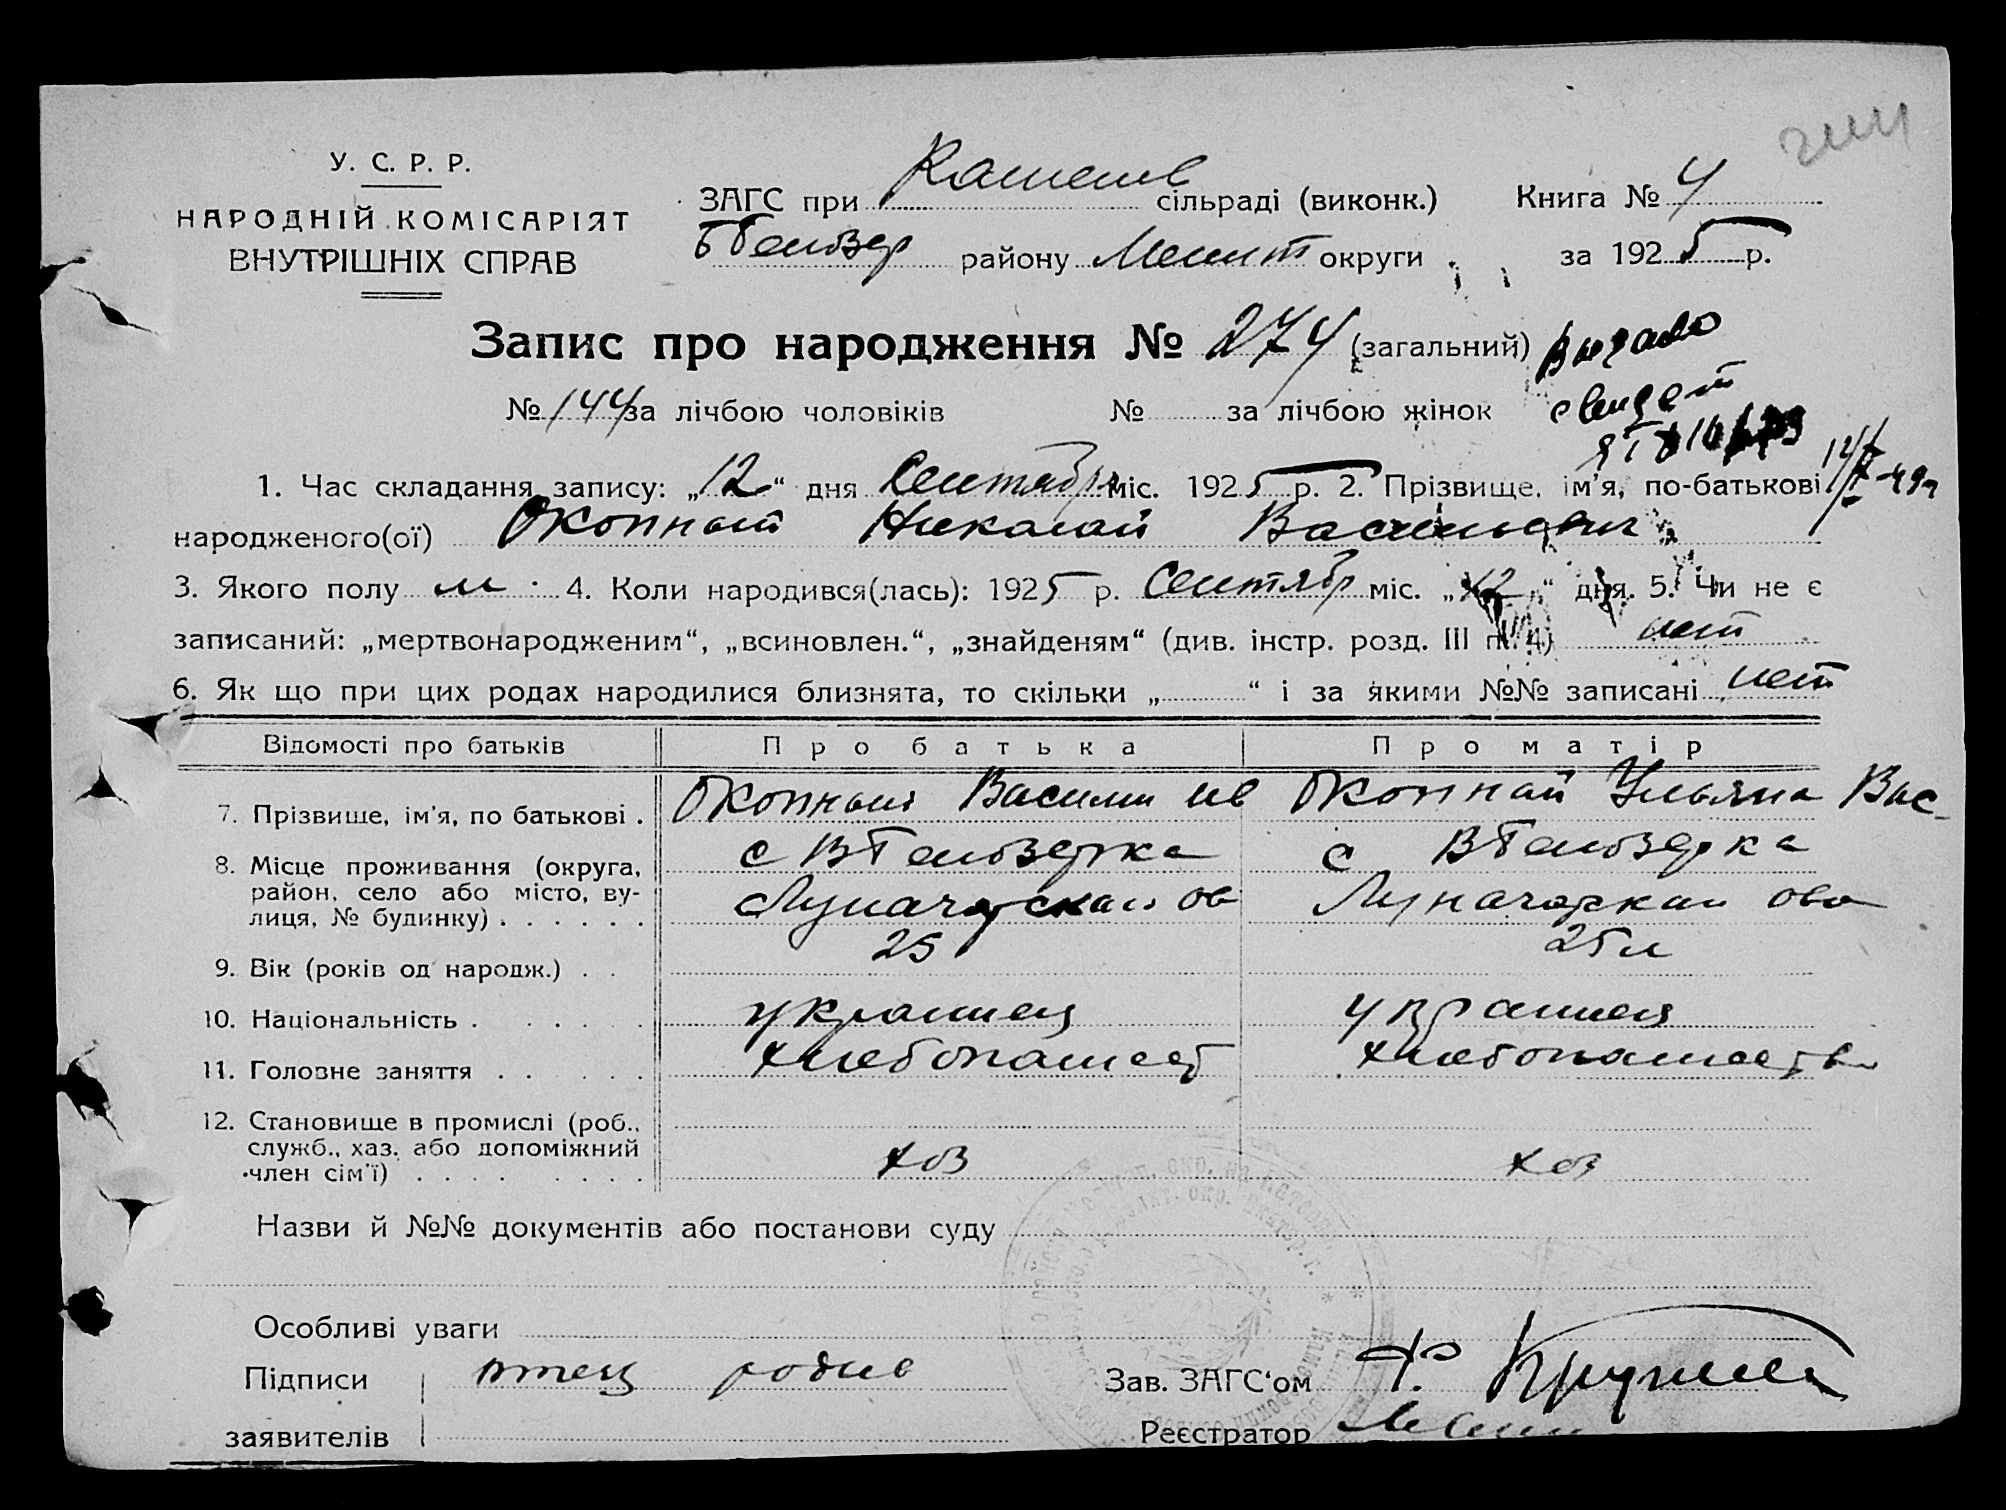 У. С. Р. Р.
НАРОДНІЙ КОМІСАРІЯТ
ВНУТРІШНІХ СПРАВ
ЗАГС при сільраді (виконк.) Книга № 4
району Мелит округи за 1925 р.
Запис про народження № 274 (загальний) Выдано
№ 144 за лічбою чоловіків № за лічбою жінок свидет
1. Час складання запису: „12“ дня Сентября міс. 1925 р. 2. Прізвище, ім'я, по-батькові
народженого(ої) Окопный Николай Васильевич
3. Якого полу м. 4. Коли народився(лась): 1925 р. Сентябр міс. „12“ дня. 5. Чи не є
записаний: „мертвонародженим“, „всиновлен.“, „знайденям“ (див. інстр. розд. III п. 4) нет
6. Як що при цих родах народилися близнята, то скільки „ “ і за якими №№ записані нет
Відомості про батьків Про батька Про матір
7. Прізвище, ім'я, по батькові . Окопный Василий Ив Окопная Ульяна Вас
8. Місце проживання (округа, район, село або місто, вулиця, № будинку) с ВБелозерка с ВБелозерка
9. Вік (років од народж.) . . 25 25 л
10. Національність . украинец украинец
11. Головне заняття . . хлебопашест хлебопашеств
12. Становище в промислі (роб., служб., хаз. або допоміжний член сім'ї) хоз хоз
Назви й №№ документів або постанови суду
Особливі уваги
Підписи отец Зав. ЗАГС'ом
заявителів Реєстратор